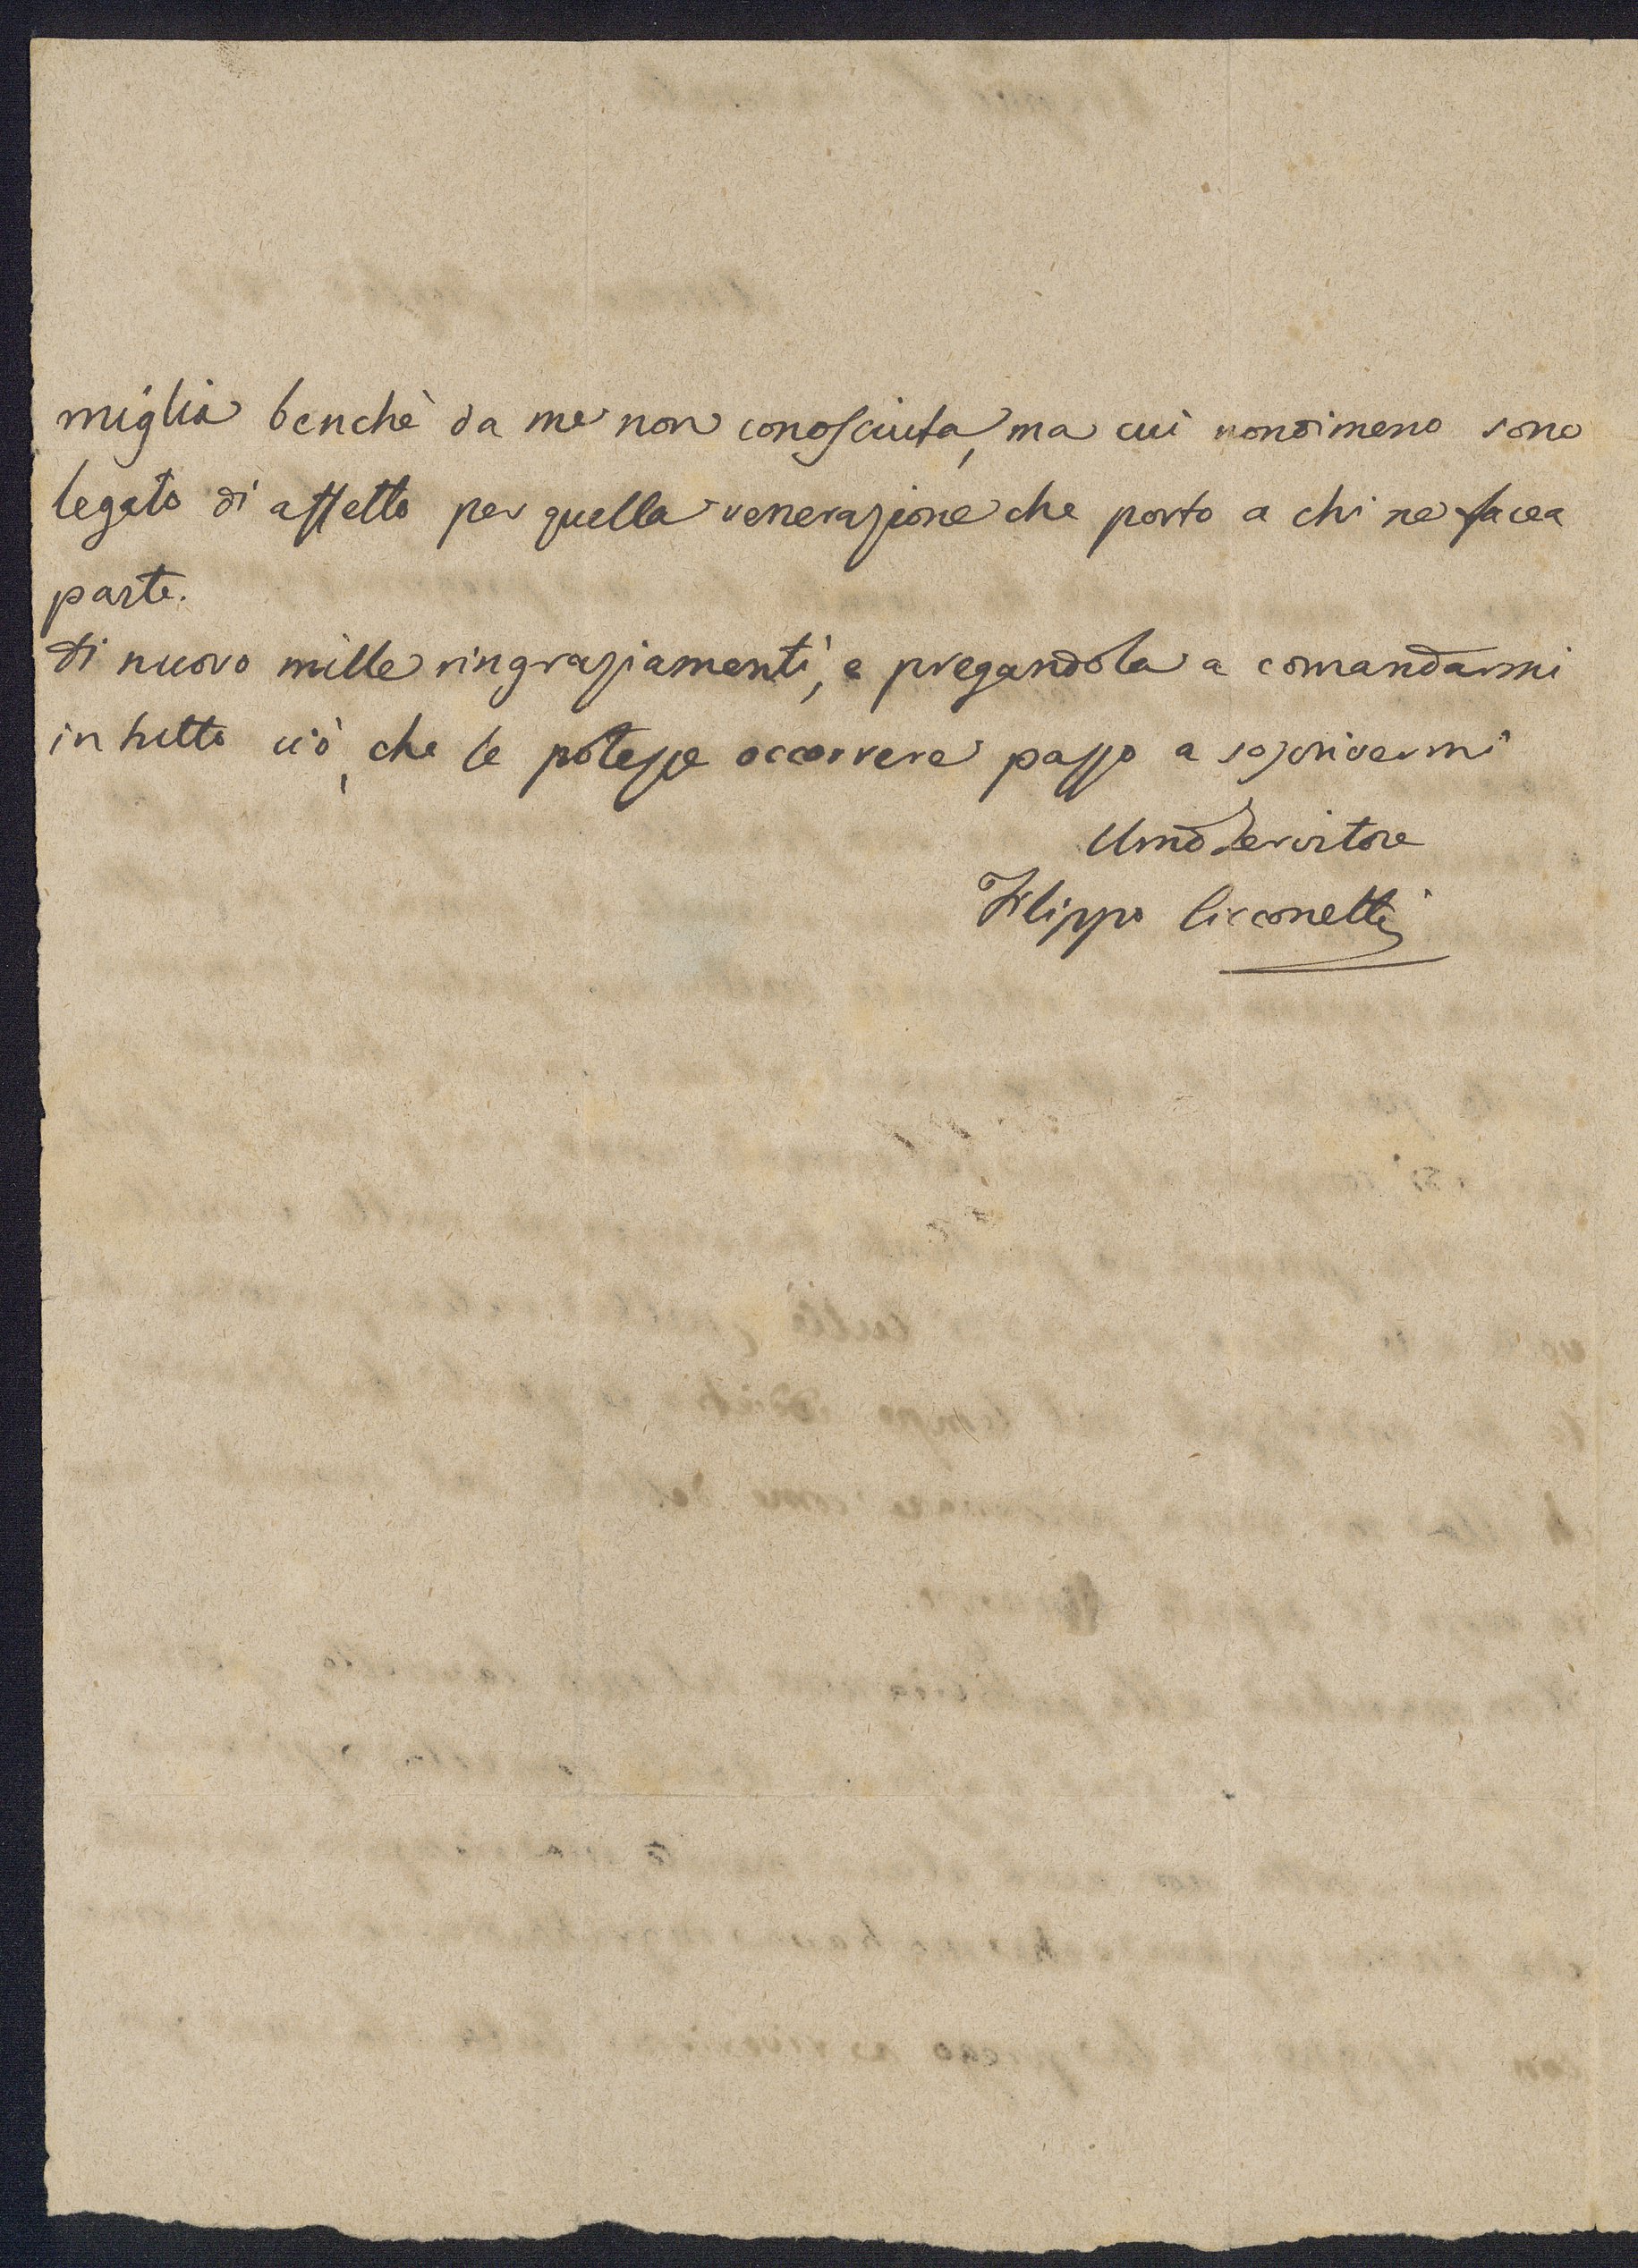 miglia benchè da me non conosciuta, ma cui nondimeno sono
legato di affetto per quella venerazione che porto a chi ne facea
parte.
Di nuovo mille ringraziamenti, e pregandola a comandarmi
in tutto ciò, che le potesse occorrere passo a soscrivermi
Umo Servitore
Filippo Cicconetti